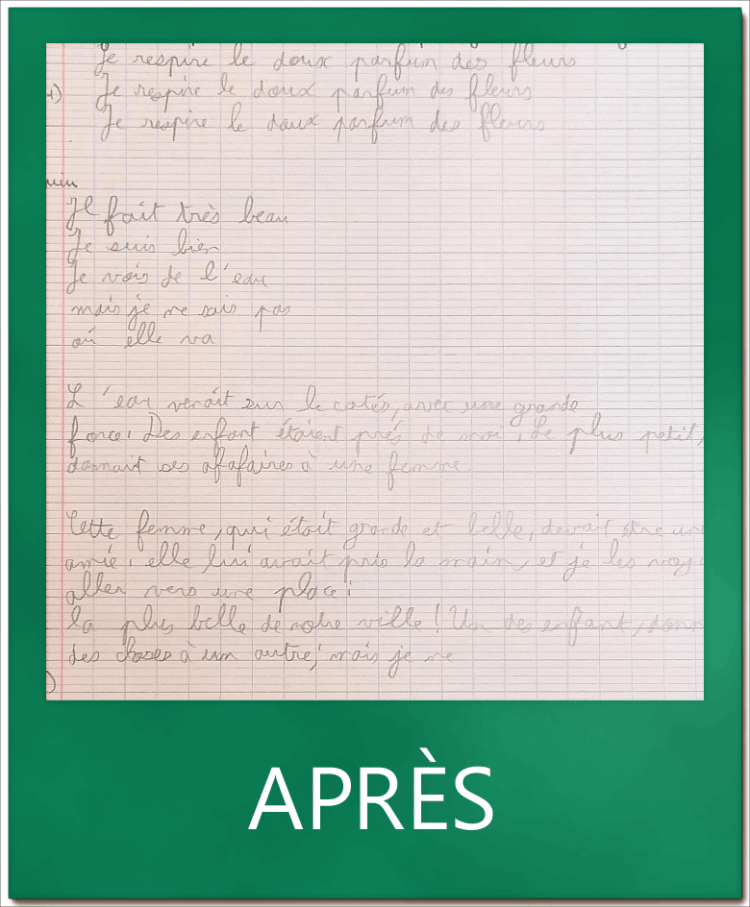 Je respire le doux parfum des fleurs
Je respire le doux parfum des fleurs
Je respire le doux parfum des fleurs
uin
Il fait très beau
Je suis bien
Je vois de l'eau
mais je ne sais pas
où elle va
L'eau venait sur le cotés, avec une grande
force. Des enfant étaient prés de moi. Le plus petit,
donnait ses afafaires à une femme.
Cette femme, qui était grande et belle, devait être un
amie. elle lui avait pris la main, et je les
aller vers une place:
la plus belle de notre ville! Un des enfant, donn
des choses à un autre, mais je ne
APRÈS